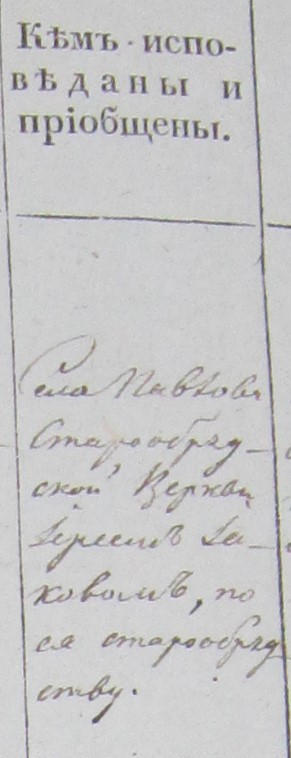 Кѣмъ испо-
вѣданы и
пріобщены.
Села Павлова
Старообряд-
ской Церкви
Іереемъ Іа-
ковомъ, по
ея старообряд
ству.